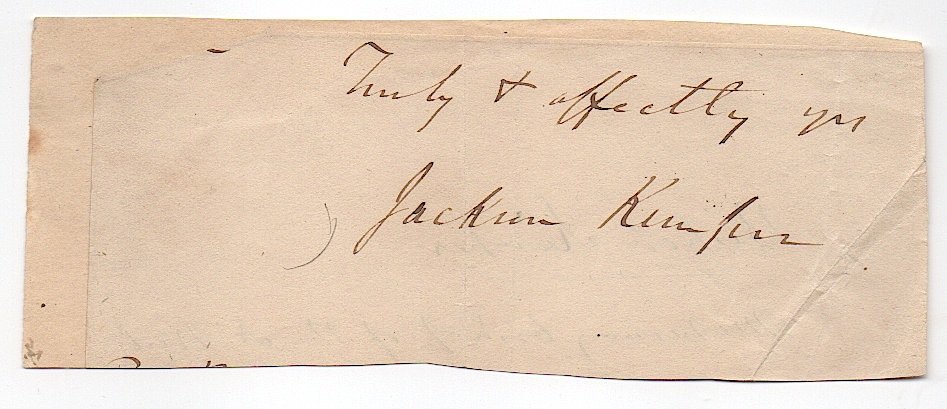 Truly & affectly yrs
Jackson Kemper